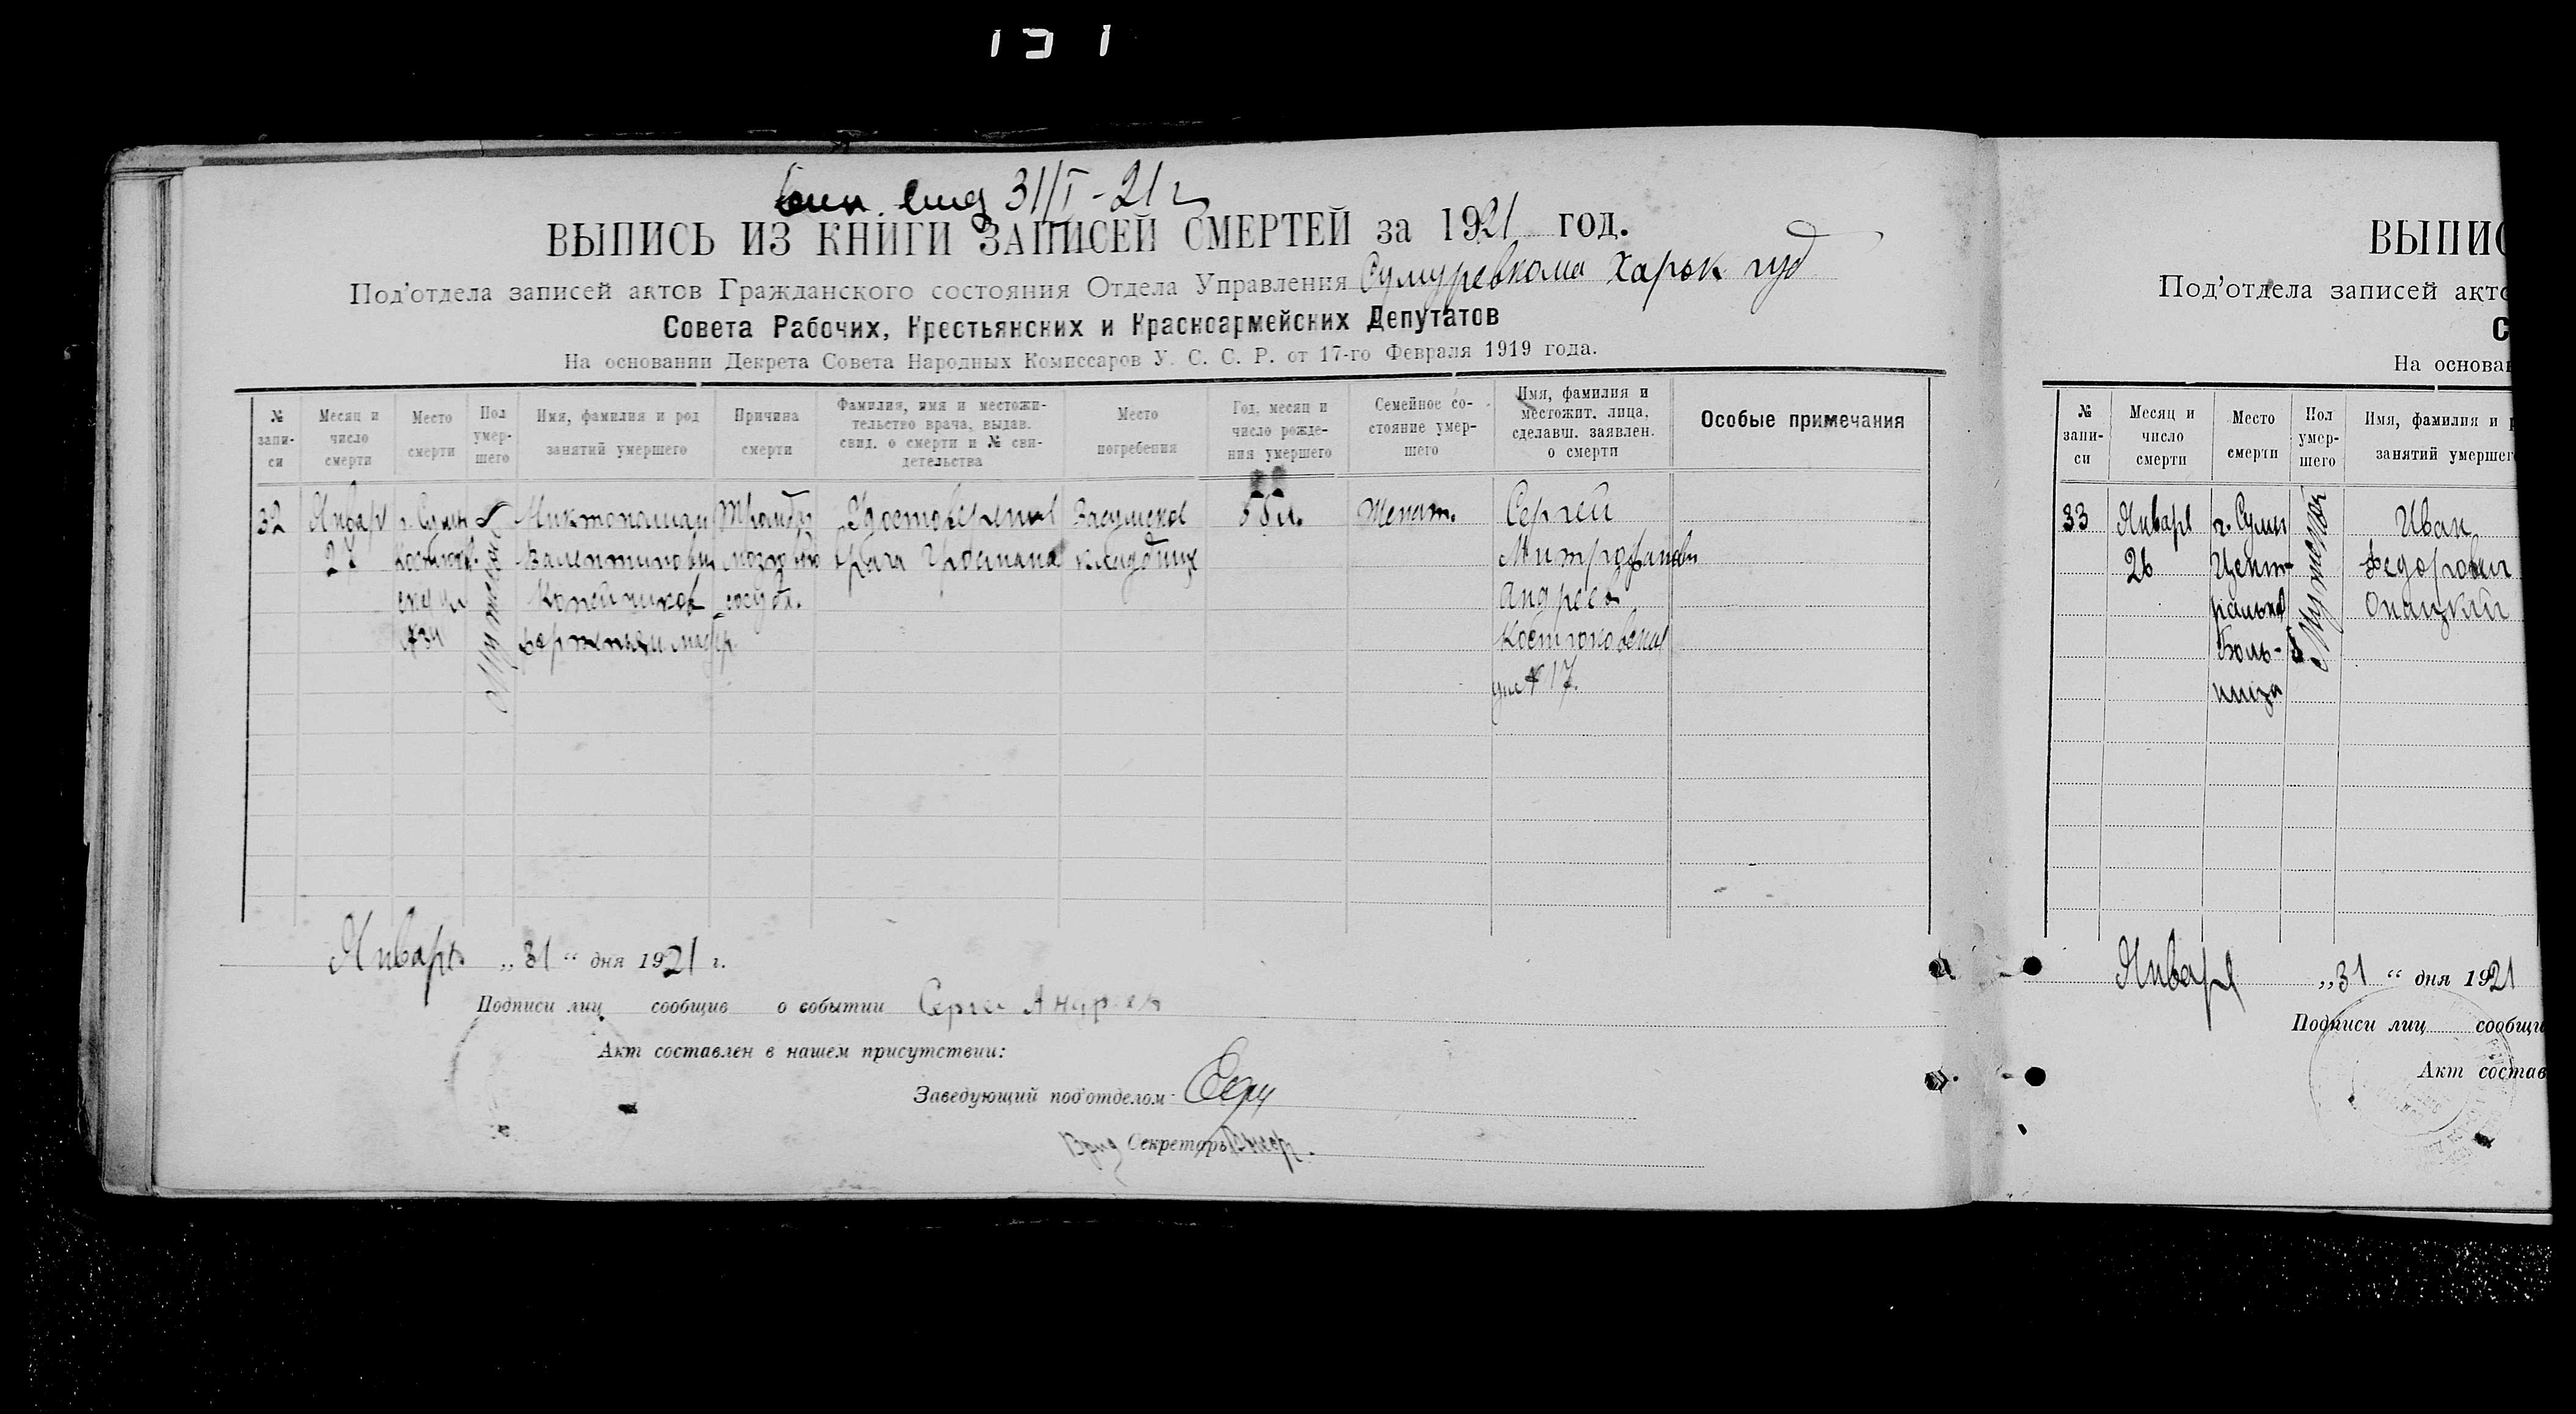 31/I - 21 г
ВЫПИСЬ ИЗ КНИГИ ЗАПИСЕЙ СМЕРТЕЙ за 1921 год.
Под'отдела записей актов Гражданского состояния Отдела Управления Сумуревкома Харьк губ
Совета Рабочих, Крестьянских и Красноармейских Депутатов
На основании Декрета Совета Народных Комиссаров У. С. С. Р. от 17-го Февраля 1919 года.
№ запи- си
Месяц и число смерти
Место смерти
Пол умер- шего
Имя, фамилия и род занятий умершего
Причина смерти
Фамилия, имя и местожи- тельство врача, выдав. свид. о смерти и № сви- детельства
Место погребения
Год, месяц и число рожде- ния умершего
Семейное со- стояние умер- шего
Имя, фамилия и местожит. лица, сделавш. заявлен. о смерти
Особые примечания
32
Январ
г. Сумы
№ 34
Мужской
Валентинович
мозгов
сосуд.
Удостоверение
врача
Засумское
кладбище
Женат.
Сергей
Митрофанович
Андреев
Костюковская
№ 17.
Январь „31“ дня 1921 г.
Подписи лиц сообщив о событии Сергей Андреев
Акт составлен в нашем присутствии:
Заведующий под'отделом
Врид Секретарь
ВЫПИС
Под'отдела записей акто
С
На основан
№ запи- си
Месяц и число смерти
Место смерти
Пол умер- шего
Имя, фамилия и р
занятий умершег
33
Январь
26
г. Сумы
Цент-
ральная
Боль-
ница
Мужской
Иван
Федорович
Опацкий
Январь „31“ дня 1921
Подписи лиц сообщи
Акт состав